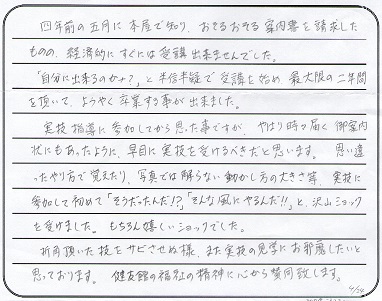 四年前の五月に本屋で知り、おそるおそる案内書を請求した
ものの、経済的にすぐには受講出来ませんでした。
「自分に出来るのかな?」と半信半疑で受講を始め 最大限の二年間
を頂いて、ようやく卒業する事が出来ました。
実技指導に参加してから思った事ですが、やはり時々届く御案内
状にもあったように、早目に実技を受けるべきだと思います。思い違
ったやり方で覚えたり、写真では解らない動かし方の大きさ等、実技に
参加して初めて「そうだったんだ!?」「そんな風にやるんだ!!」と、沢山ショック
を受けました。もちろん嬉しいショックでした。
折角頂いた技をサビさせぬ様、また実技の見学にお邪魔したいと
思っております。健友館の福祉の精神に心から賛同致します。